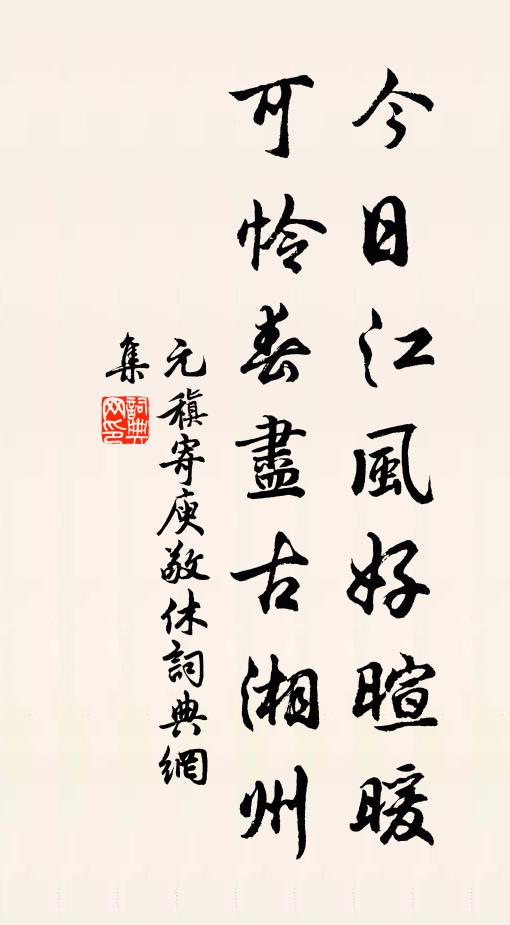 今日江風好暄暖
可憐春盡古湘州
元稹寄庾敬休詞典網
集
詞典
网印